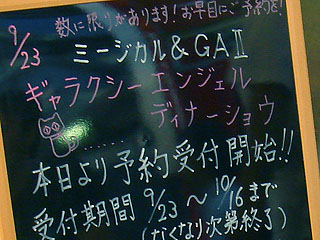 数に限りがあります！お早目にご予約を！
9/23
ミージカル&GAⅡ
ギャラクシーエンジェル
ディナーショウ
......
本日より予約受付開始!!
受付期間 9/23〜10/16まで
(なくなり次第終了)